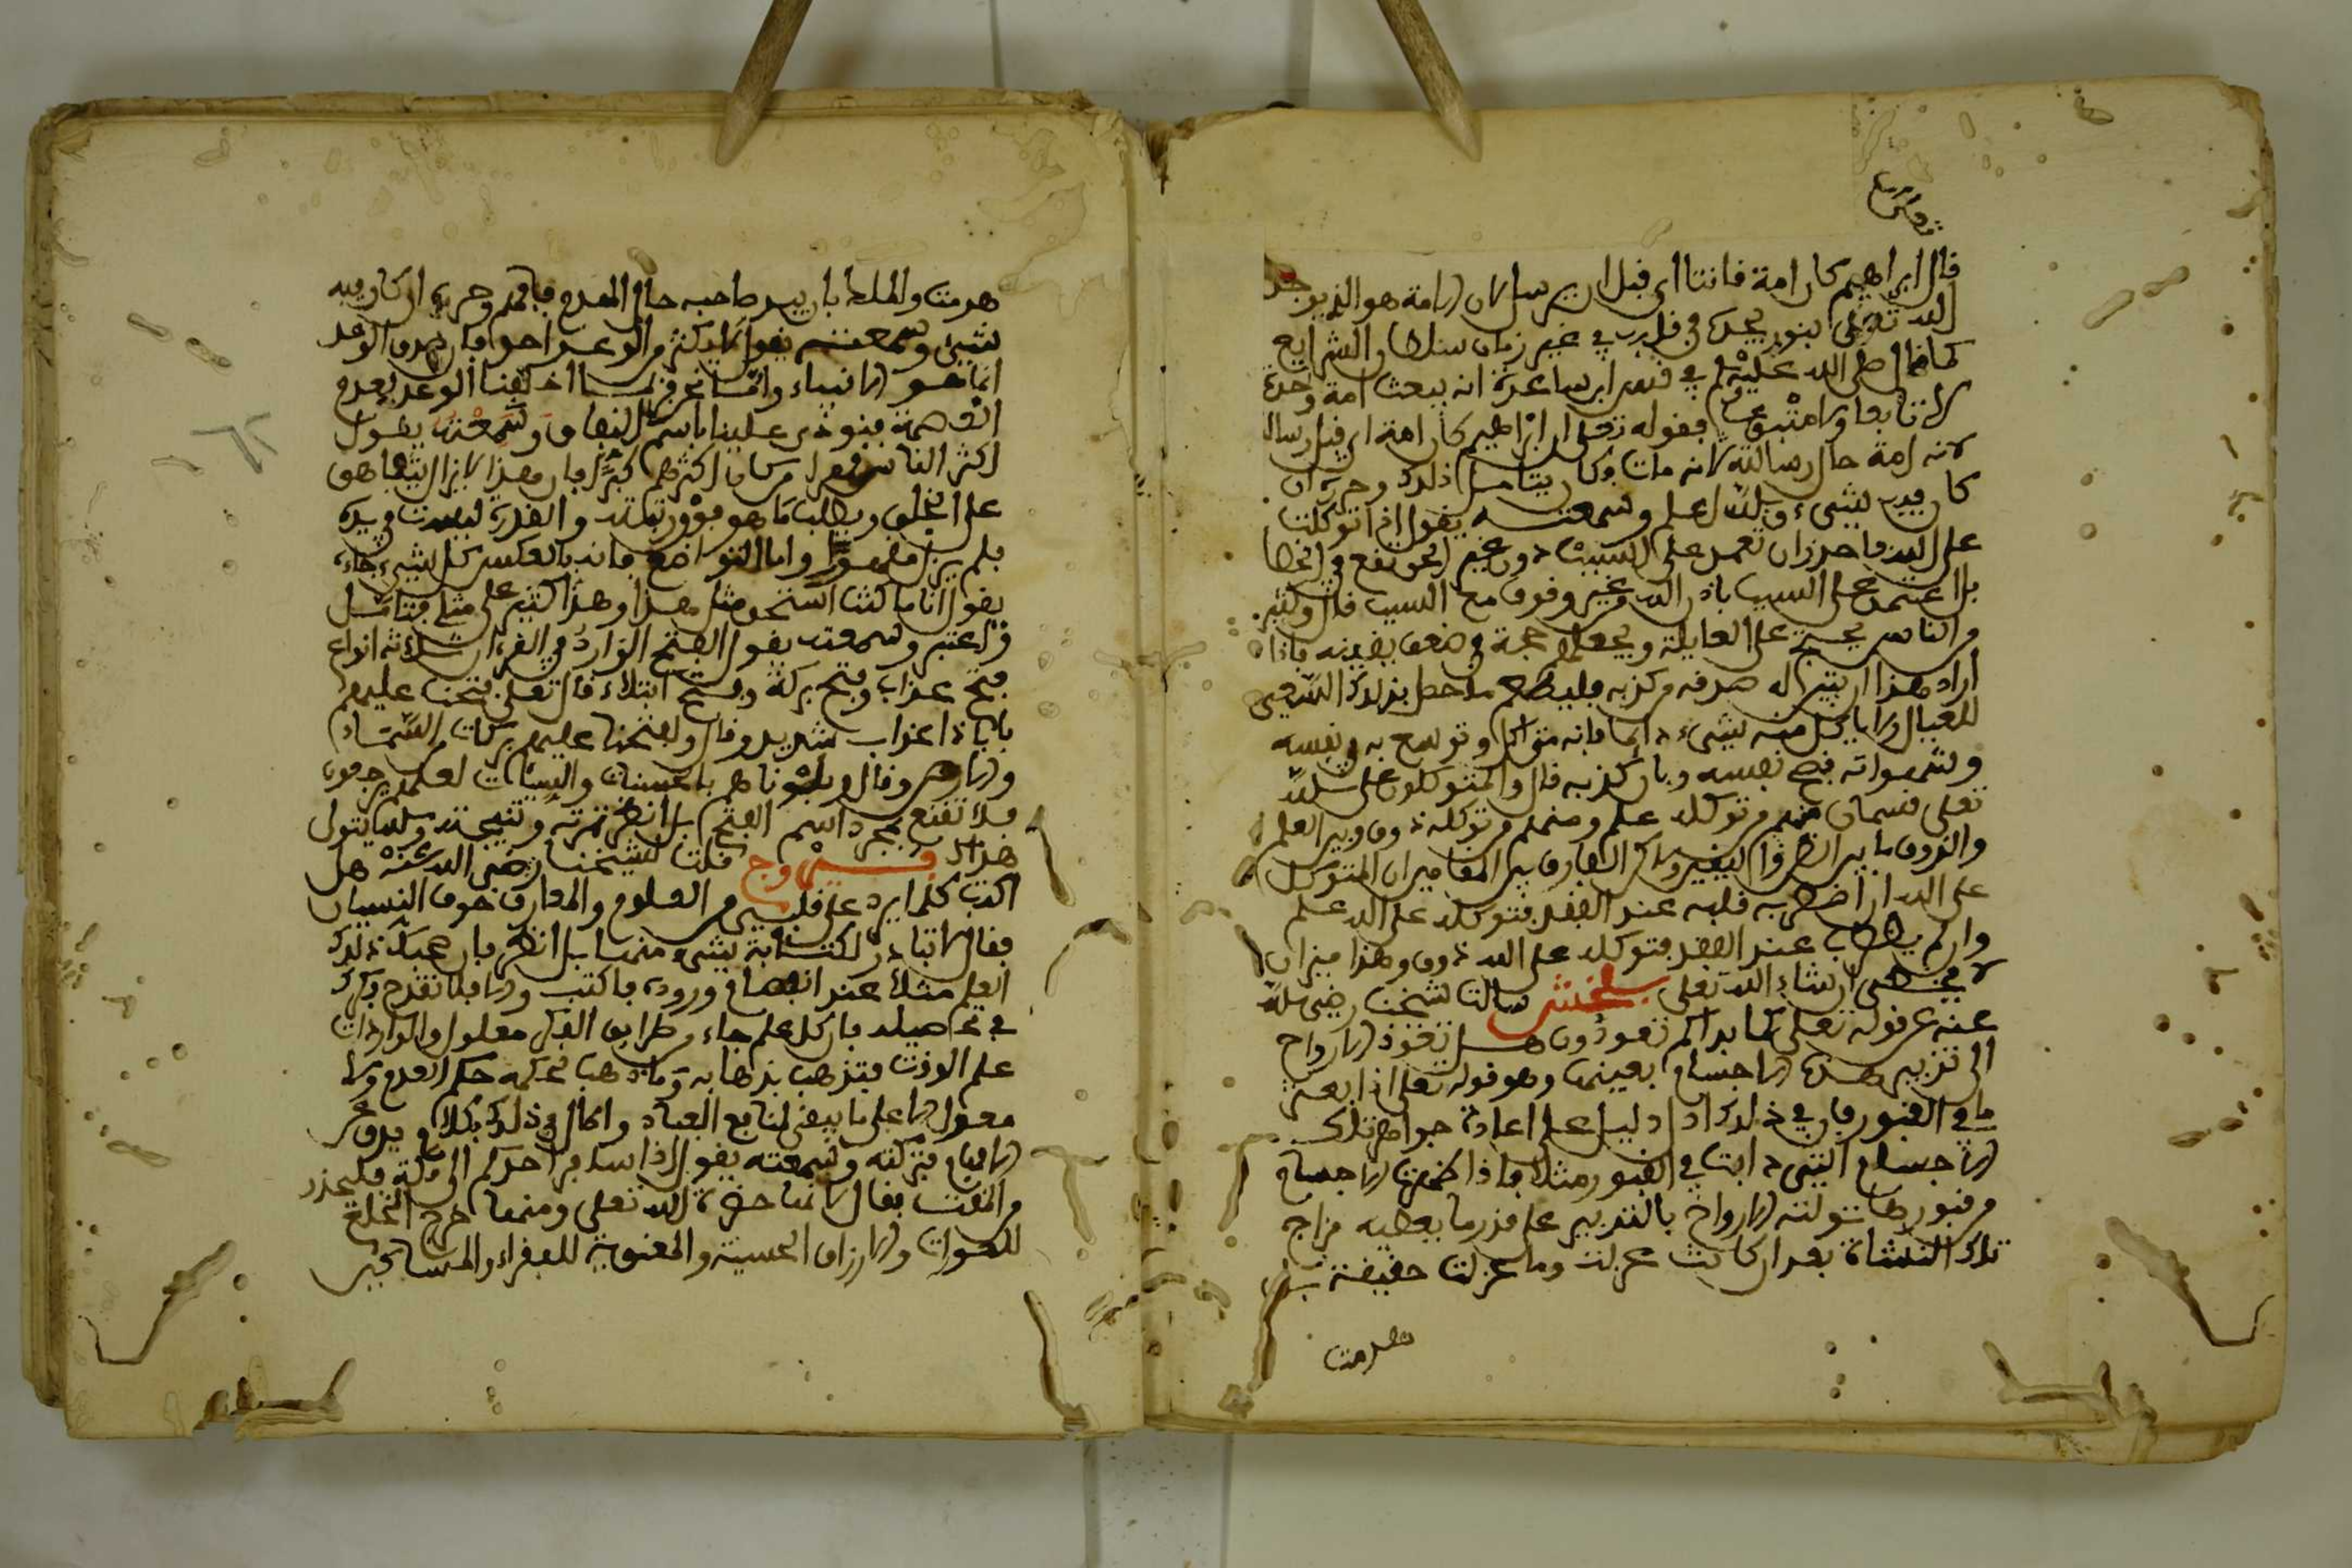 قال ابراهيم كان امة قانتا اي قبل ان يرسل لان الامة هو الذي يوحد
الله تعلى بنور يجده في قلبه في غير زمان سلطان الشرايع
كما قال صلى الله عليه وسلم في قس ابن ساعدة انه يبعث امة وحده
لا تابعا ولا متبوعا فقوله تعلى ان ابراهيم كان امة اي قبل رسال
لانه امة حال رسالته لانه مات وكان فليتامل ذلك وحرره ان
كان فيه شيء والله اعلم وسمعته يقول اذا توكلت
على الله فاحذر ان تعمد على السبب دون غير الحق تقع في الخطا
بل اعتمد على السبب باذن الله من غير وقوف مع السبب قال وكثير
من الناس يحسن على العايلة ويجعلهم حجة في ضعف يقينه فاذا
اراد هذا ان يتبين له صدقه من كذبه فليطعم ما حصل بذلك السعي
للعيال ولا ياكل منه شيء دايما فانه متى اكل وتوسع به في نفسه
وشهواته فضح نفسه وبان كذبه قال والمتوكلون على الله
تعلى قسمان منهم من توكله علم ومنهم من توكله ذوق وبين العلم
والذوق ما بين الظن واليقين ولاكن الفارق بين المقامين ان المتوكل
على الله ان اضطرب قلبه عند الفقد فتوكله على الله علم
وان لم يضطرب عند الفقد فتوكله على الله ذوق وهذا ميزان
لا يخطي ان شاء الله تعلى بلخش سالت شيخنا رضي الله
عنه عن قوله تعلى كما بداكم تعودون هل تعود الارواح
الى تدبير هذه الاجسام بعينها وهو قوله تعلى اذا بعثر
ما في القبور فان في ذلك ادل دليل على اعادة جواهر تلك
الاجسام التي دابت في القبور مثلا فاذا ظهرت الاجسام
من قبورها تولته الارواح بالتدبير على قدر ما يعطيه مزاج
تلك النشاة بعد ان كانت عزلت وما عزلت حقيقة
هدمت
هدمت والملك بان يبيد صاحبه حال الهدم فافهم وحرره ان كان فيه
شيئ وسمعته يقول لا يكثر من الوعد احد فان صدق الوعد
انما هو للانبياء واما نحن فربما اخلفنا الوعد لعدم
العصمة فينودى علينا باسم النفاق وسمعته يقول
اكثر الناس مقهرا من كان اكثرهم كبرا فان هذا لا يزال يتعاهى
على الخلق ويطلب ما هو فوق رتبته والقدرة ليست في يده
فلم يزل مقهورا واما المتواضع فانه بالعكس كل شيء جاءه
يقول انا ما كنت استحق مثل هذا وهذا كثير على مثلي فتامل
واعتبر وسمعته يقول الفتح الوارد في القرءان ثلاثة انواع
فتح عذاب وفتح بركة وفتح ابتلاء قال تعلى فتحنا عليهم
بابا ذا عذاب شديد وقال لفتحنا عليهم بركات من السماء
والارض وقال وبلوناهم بالحسنات والسيئات لعلهم يرجعون
فلا تقنع بمجرد اسم الفتح بل انظر ثمرته ونتيجته والله يتولى
هداك فيروزج قلت لشيخنا رضي الله عنه هل
اكتب كلما يرد على قلبي من العلوم والمعارف خوف النسيان
فقال لا تبادر لكتابة شيء منها بل انظر فان صحبك ذلك
العلم مثلا عند انقضاء وروده فاكتب والا فلا تقدح فكرك
في تحصيله فان كل علم جاء من طريق الفكر معلول والواردات
على الوقت فتذهب بذهابه وما ذهب فحكمه حكم العدم ولا
معول الا على ما يبقى لمنافع العباد واطال في ذلك بكلام يدق عن
الافهام فتركته وسمعته يقول اذا سافر احدكم الى مكة فليحذر
من المقت فقال لانها حضرة الله تعلى ومنها خرج الخلع
للصوات والارزاق الحسية والمعنوية للفقراء والمساكين